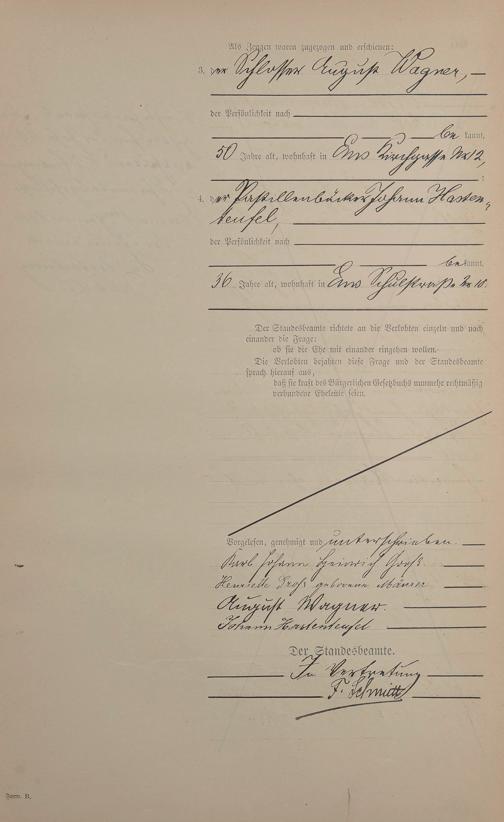 Als Zeugen waren zugezogen und erschienen:
3. der Schlosser August Wagner,
der Persönlichkeit nach
bekannt,
50 Jahre alt, wohnhaft in Ems Kirchgasse Nr 12,
;
4. der Pastillenbäcker Johann Hasten-
teufel,
der Persönlichkeit nach
bekannt,
36 Jahre alt, wohnhaft in Ems Schulstraße Nr 10.
Der Standesbeamte richtete an die Verlobten einzeln und nach
einander die Frage:
ob sie die Ehe mit einander eingehen wollen.
Die Verlobten bejahten diese Frage und der Standesbeamte
sprach hierauf aus,
daß sie kraft des Bürgerlichen Gesetzbuchs nunmehr rechtmäßig
verbundene Eheleute seien.
Vorgelesen, genehmigt und unterschrieben.
Karl Johann Heinrich Groß
Groß geborene
August Wagner.
Johann Hastenteufel
Der Standesbeamte.
In Vertretung
F. Schmitt
Form. B.